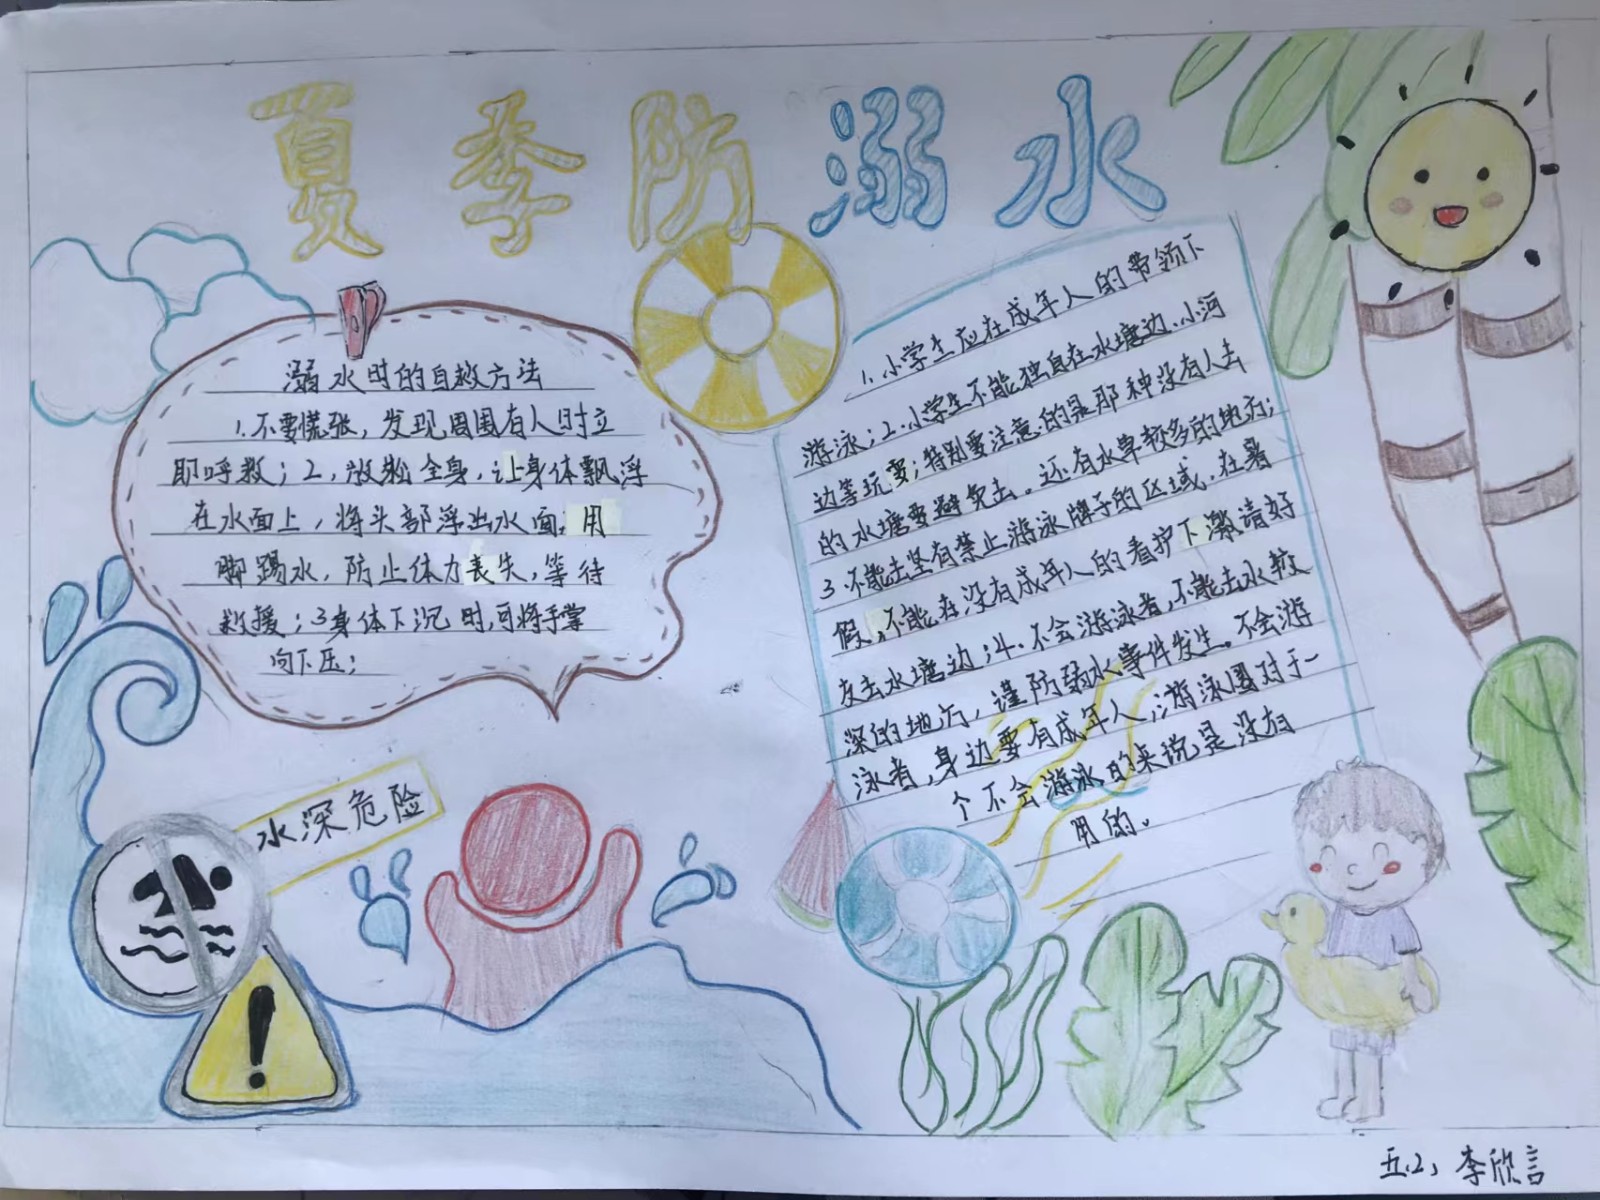 夏季防溺水
溺水时的自救方法
1.不要慌张，发现周围有人时立
即呼救；2，放松全身，让身体飘浮
在水面上，将头部浮出水面，用
脚踢水，防止体力丧失，等待
救援；3身体下沉时，可将手掌
向下压；
1.小学生应在成年人的带领下
游泳；2.小学生不能独自在水塘边、小河
边等玩耍；特别要注意的是那种没有人去
的水塘要避免去。还有水草较多的地方；
3.不能去坚有禁止游泳牌子的区域，在暑
假，不能在没有成年人的看护下邀请好
友去水塘边；4.不会游泳者，不能去水较
深的地方，谨防溺水事件发生。不会游
泳者，身边要有成年人，游泳圈对于一
个不会游泳的来说是没有
用的。
水深危险
五.2、李欣言